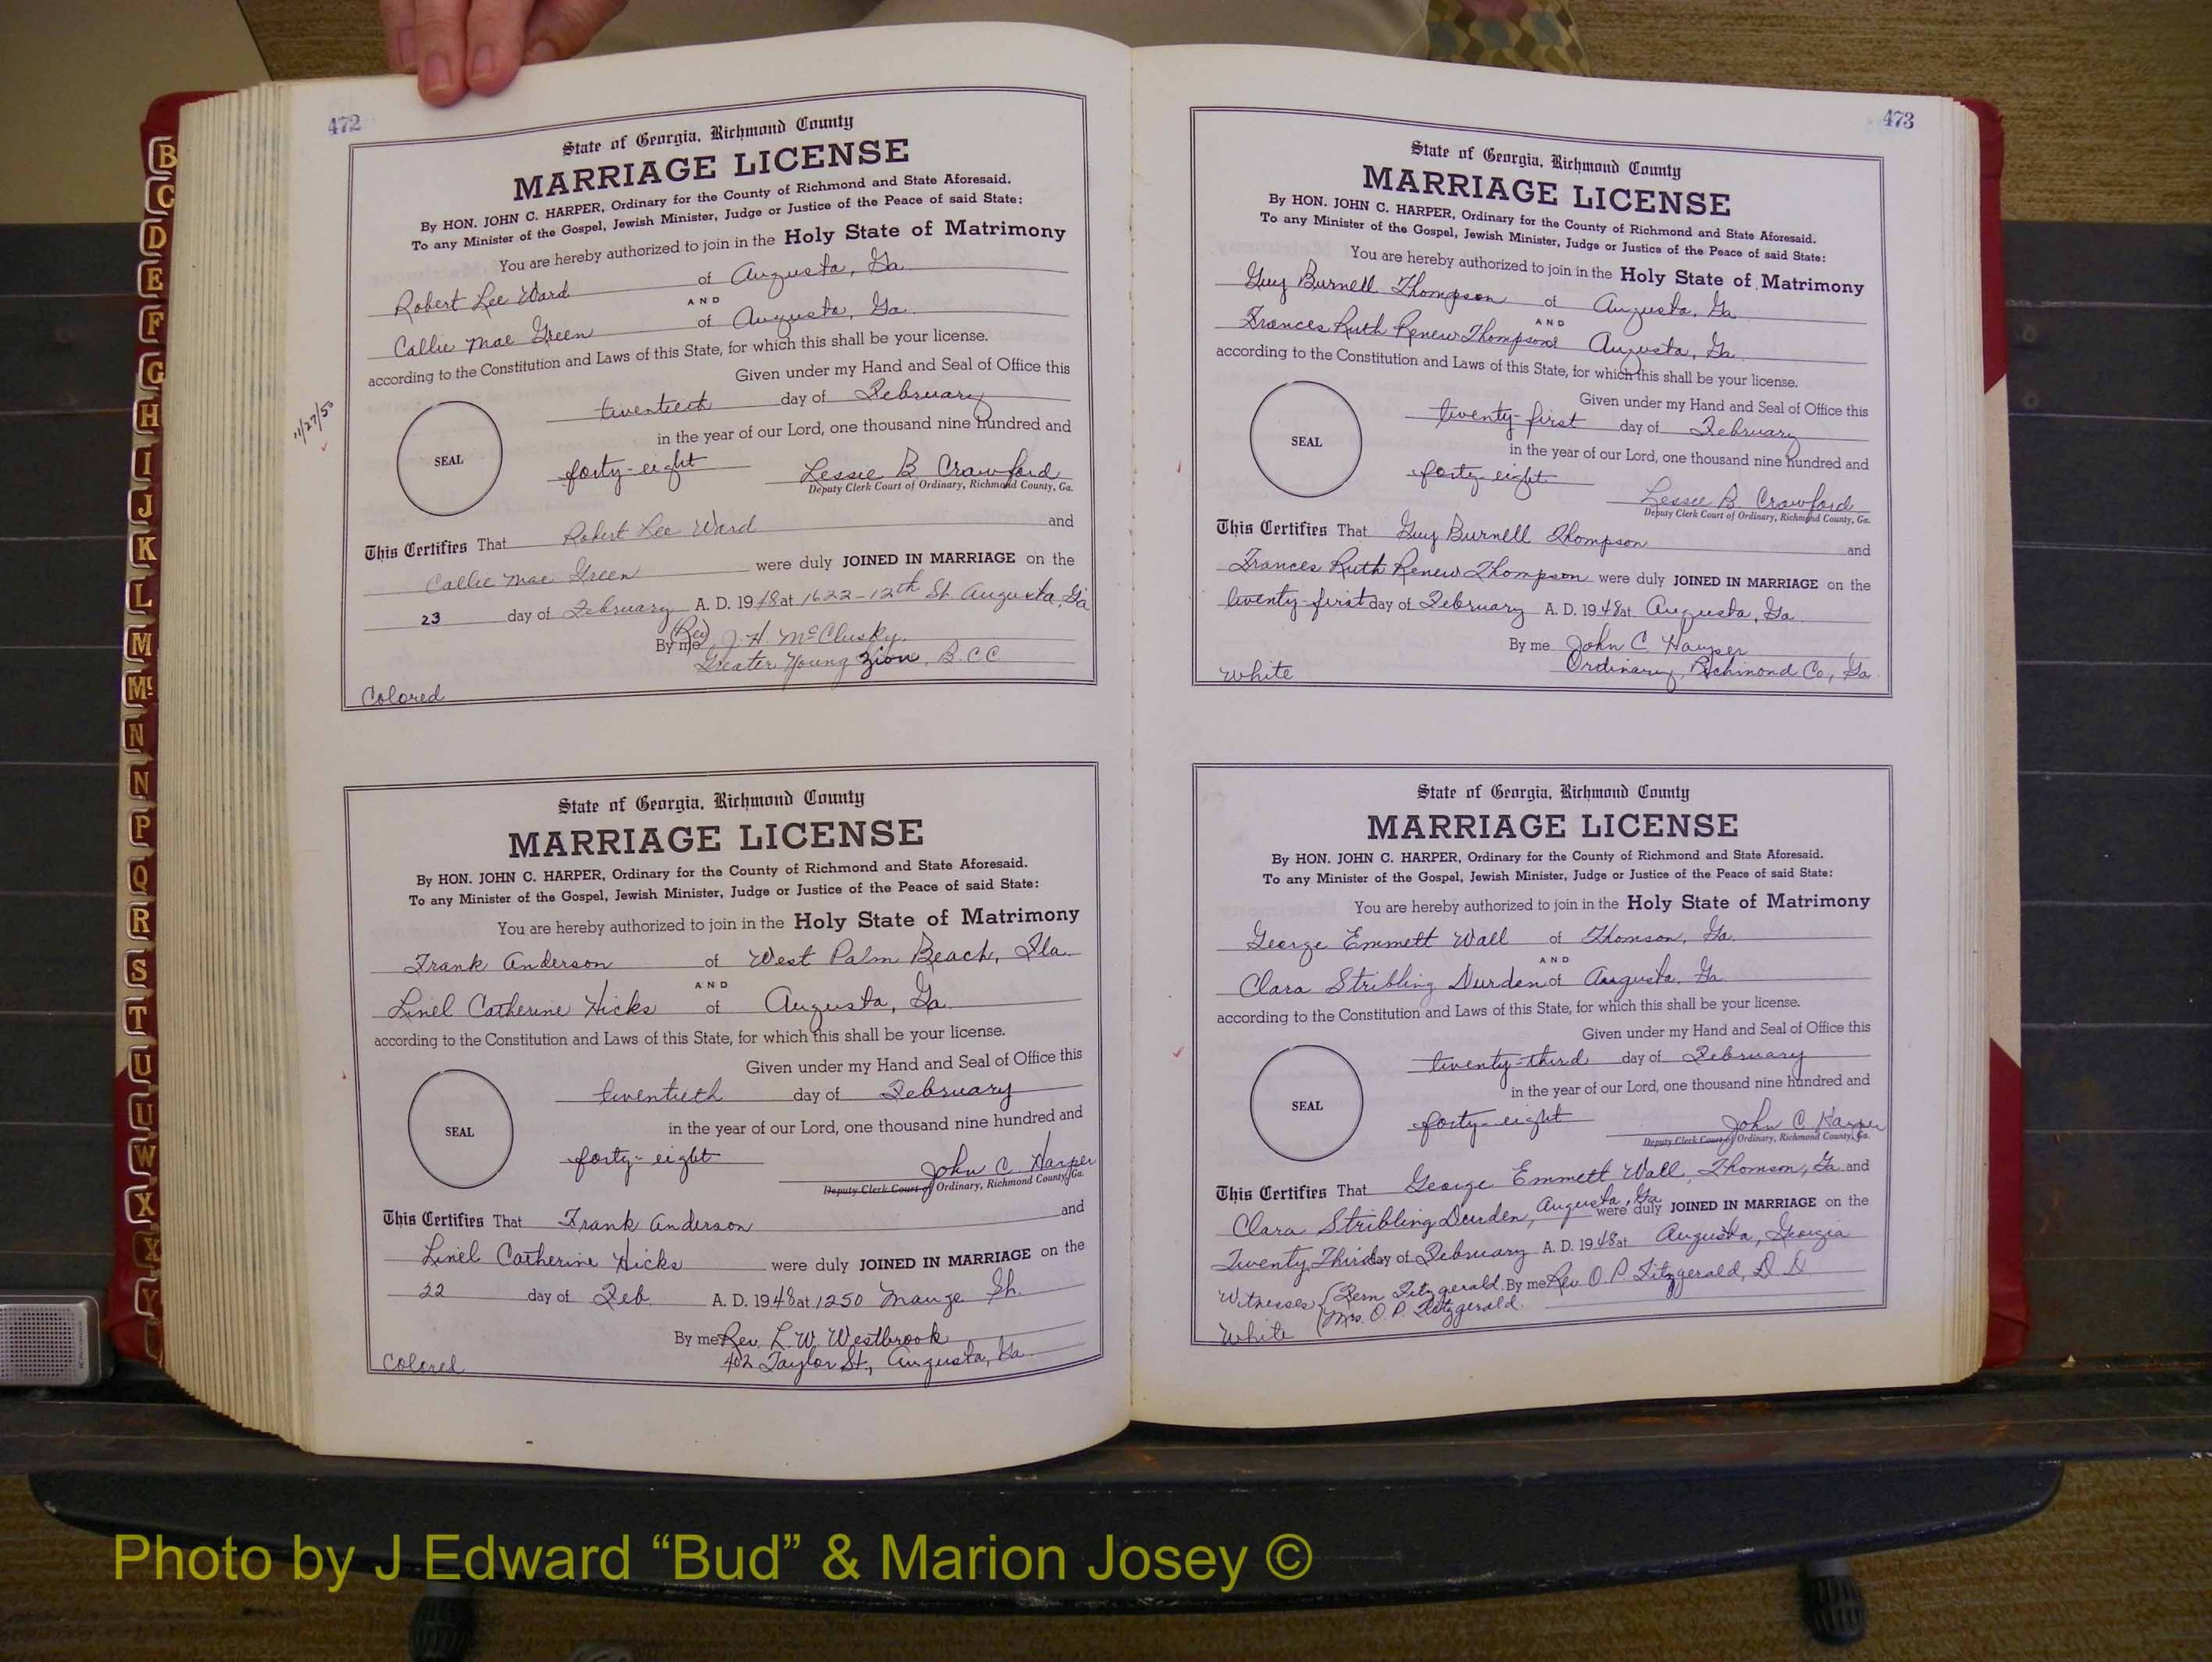 472
State of Georgia, Richmond County
MARRIAGE LICENSE
By HON. JOHN C. HARPER, Ordinary for the County of Richmond and State Aforesaid.
To any Minister of the Gospel, Jewish Minister, Judge or Justice of the Peace of said State:
You are hereby authorized to join in the Holy State of Matrimony
Robert Lee Ward of Augusta, Ga.
AND
Callie Mae Green of Augusta, Ga.
according to the Constitution and Laws of this State, for which this shall be your license.
Given under my Hand and Seal of Office this
twentieth day of February
in the year of our Lord, one thousand nine hundred and
SEAL
forty-eight Lessie B. Crawford
Deputy Clerk Court of Ordinary, Richmond County, Ga.
11/27/50
This Certifies That Robert Lee Ward and
Callie Mae Green were duly JOINED IN MARRIAGE on the
23 day of February A. D. 1948 at 1622-12th St. Augusta, Ga
By me (Rev) J. H. McClusky
Greater Young Zion, B.C.C
Colored
State of Georgia, Richmond County
MARRIAGE LICENSE
By HON. JOHN C. HARPER, Ordinary for the County of Richmond and State Aforesaid.
To any Minister of the Gospel, Jewish Minister, Judge or Justice of the Peace of said State:
You are hereby authorized to join in the Holy State of Matrimony
Frank Anderson of West Palm Beach, Fla.
AND
Linel Catherine Hicks of Augusta, Ga.
according to the Constitution and Laws of this State, for which this shall be your license.
Given under my Hand and Seal of Office this
twentieth day of February
in the year of our Lord, one thousand nine hundred and
SEAL
forty-eight John C. Harper
Deputy Clerk Court of Ordinary, Richmond County, Ga.
This Certifies That Frank Anderson and
Linel Catherine Hicks were duly JOINED IN MARRIAGE on the
22 day of Feb. A. D. 1948 at 1250 Mauge St.
By me Rev. L. W. Westbrook
402 Taylor St., Augusta, Ga.
Colored
473
State of Georgia, Richmond County
MARRIAGE LICENSE
By HON. JOHN C. HARPER, Ordinary for the County of Richmond and State Aforesaid.
To any Minister of the Gospel, Jewish Minister, Judge or Justice of the Peace of said State:
You are hereby authorized to join in the Holy State of Matrimony
Guy Burnell Thompson of Augusta, Ga.
AND
Frances Ruth Renew Thompson of Augusta, Ga.
according to the Constitution and Laws of this State, for which this shall be your license.
Given under my Hand and Seal of Office this
twenty-first day of February
in the year of our Lord, one thousand nine hundred and
SEAL
forty-eight Lessie B. Crawford
Deputy Clerk Court of Ordinary, Richmond County, Ga.
This Certifies That Guy Burnell Thompson and
Frances Ruth Renew Thompson were duly JOINED IN MARRIAGE on the
twenty-first day of February A. D. 1948 at Augusta, Ga.
By me John C. Harper
Ordinary, Richmond Co., Ga.
White
State of Georgia, Richmond County
MARRIAGE LICENSE
By HON. JOHN C. HARPER, Ordinary for the County of Richmond and State Aforesaid.
To any Minister of the Gospel, Jewish Minister, Judge or Justice of the Peace of said State:
You are hereby authorized to join in the Holy State of Matrimony
George Emmett Wall of Thomson, Ga.
AND
Clara Stribling Durden of Augusta, Ga.
according to the Constitution and Laws of this State, for which this shall be your license.
Given under my Hand and Seal of Office this
twenty-third day of February
in the year of our Lord, one thousand nine hundred and
SEAL
forty-eight John C. Harper
Deputy Clerk Court of Ordinary, Richmond County, Ga.
This Certifies That George Emmett Wall, Thomson, Ga. and
Clara Stribling Durden, Augusta, Ga. were duly JOINED IN MARRIAGE on the
Twenty Third day of February A. D. 1948 at Augusta, Georgia
By me Rev. O. P. Fitzgerald, D. D.
Witnesses (Bern Fitzgerald.
(Mrs. O. P. Fitzgerald.
White
B
C
D
E
F
G
H
I
J
K
L
M
Mc
N
N
P
Q
R
S
T
U
U
W
X
X
Y
Photo by J Edward “Bud” & Marion Josey ©